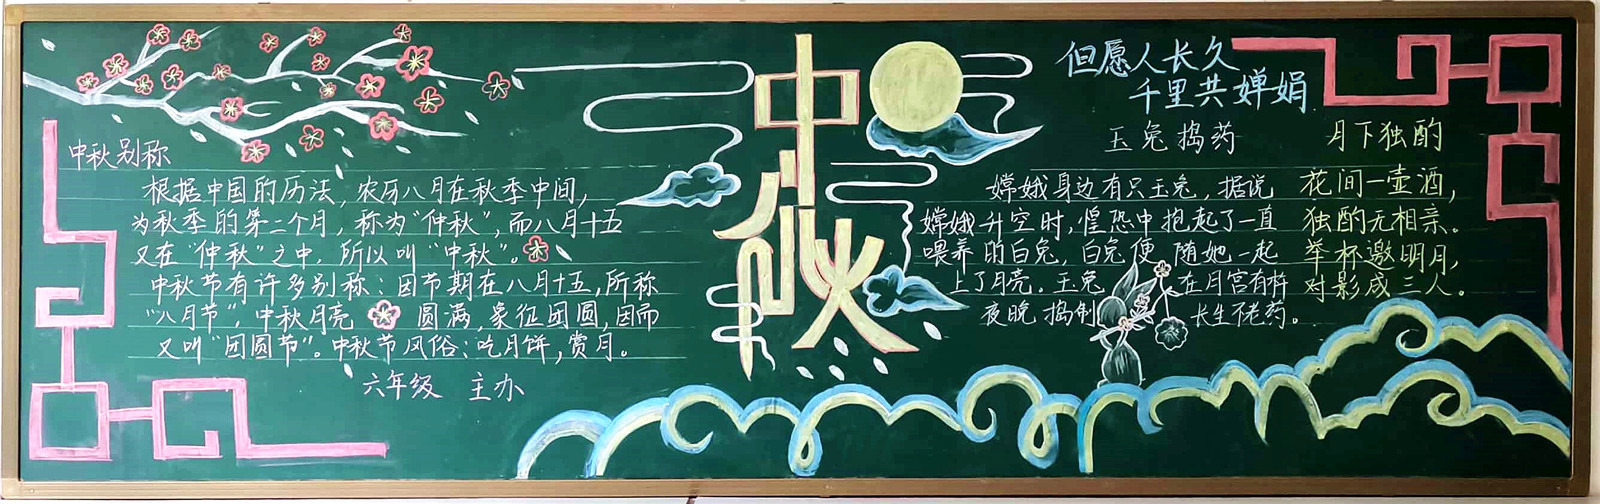 中秋别称
根据中国的历法,农历八月在秋季中间,
为秋季的第二个月,称为“仲秋”,而八月十五
又在“仲秋”之中,所以叫“中秋”。
中秋节有许多别称:因节期在八月十五,所称
“八月节”,中秋月亮圆满,象征团圆,因而
又叫“团圆节”。中秋节风俗:吃月饼,赏月。
六年级 主办
中秋
但愿人长久
千里共婵娟
玉兔捣药
嫦娥身边有只玉兔,据说
嫦娥升空时,惶恐中抱起了一直
喂养的白兔,白兔便随她一起
上了月亮。玉兔在月宫有杵
夜晚捣制长生不老药。
月下独酌
花间一壶酒,
独酌无相亲。
举杯邀明月,
对影成三人。